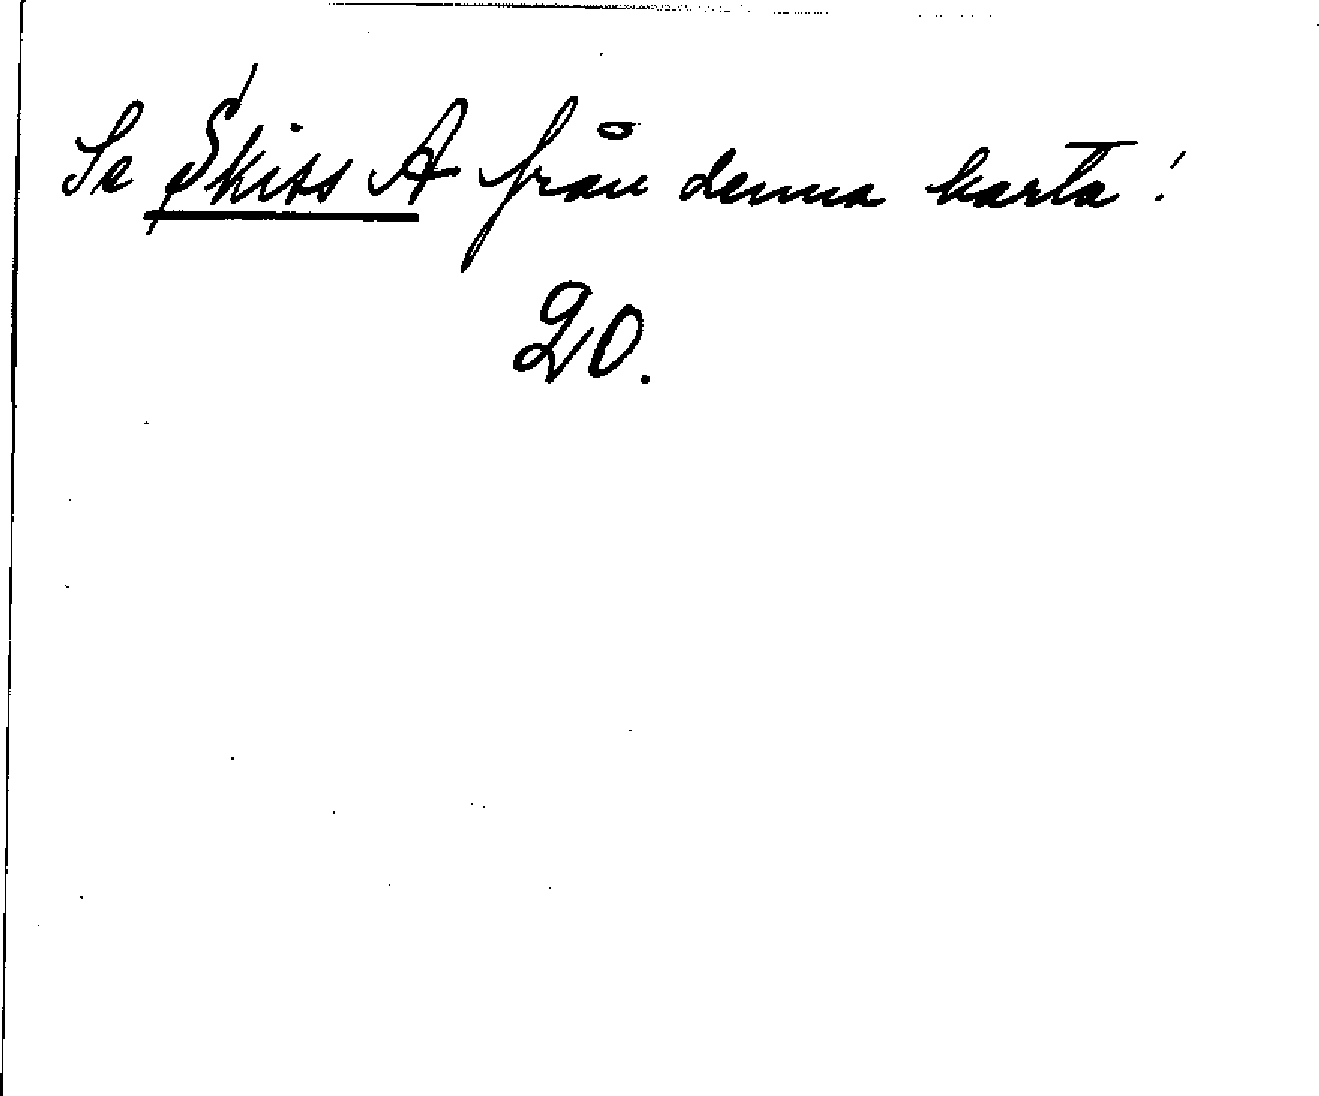 Se Skiss A från denna karta!
20.